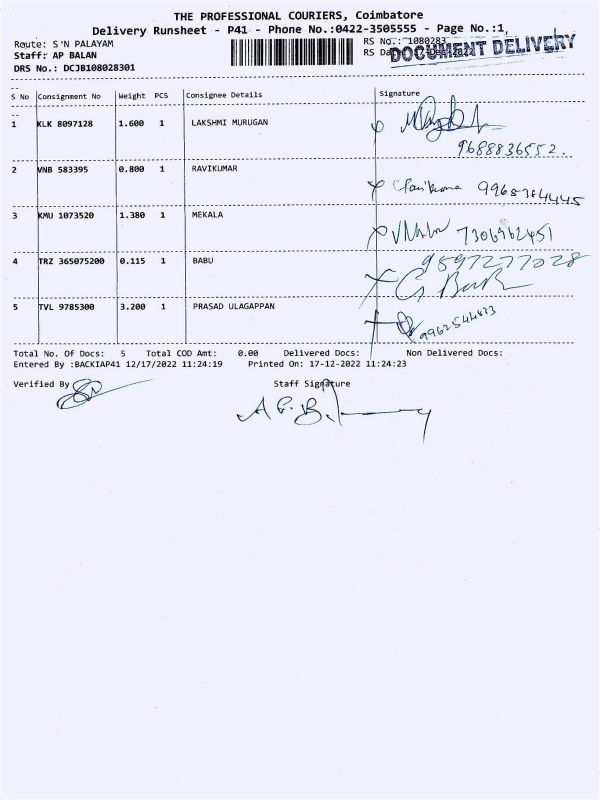 THE PROFESSIONAL COURIERS, Coimbatore
Delivery Runsheet - P41 - Phone No.:0422-3505555 - Page No.:1,
Route: S'N PALAYAM
RS No.: 1080283
Staff: AP BALAN
RS Date: 17-Dec-2022
DOCUMENT DELIVERY
DRS No.: DCJB108028301
S No Consignment No Weight PCS Consignee Details Signature
1 KLK 8097128 1.600 1 LAKSHMI MURUGAN
9688836552.
2 VNB 583395 0.800 1 RAVIKUMAR
3 KMU 1073520 1.380 1 MEKALA
7306962451
4 TRZ 365075200 0.115 1 BABU 9597277028
5 TVL 9785300 3.200 1 PRASAD ULAGAPPAN
Total No. Of Docs: 5 Total COD Amt: 0.00 Delivered Docs: Non Delivered Docs:
Entered By :BACKIAP41 12/17/2022 11:24:19 Printed On: 17-12-2022 11:24:23
Verified By Staff Signature